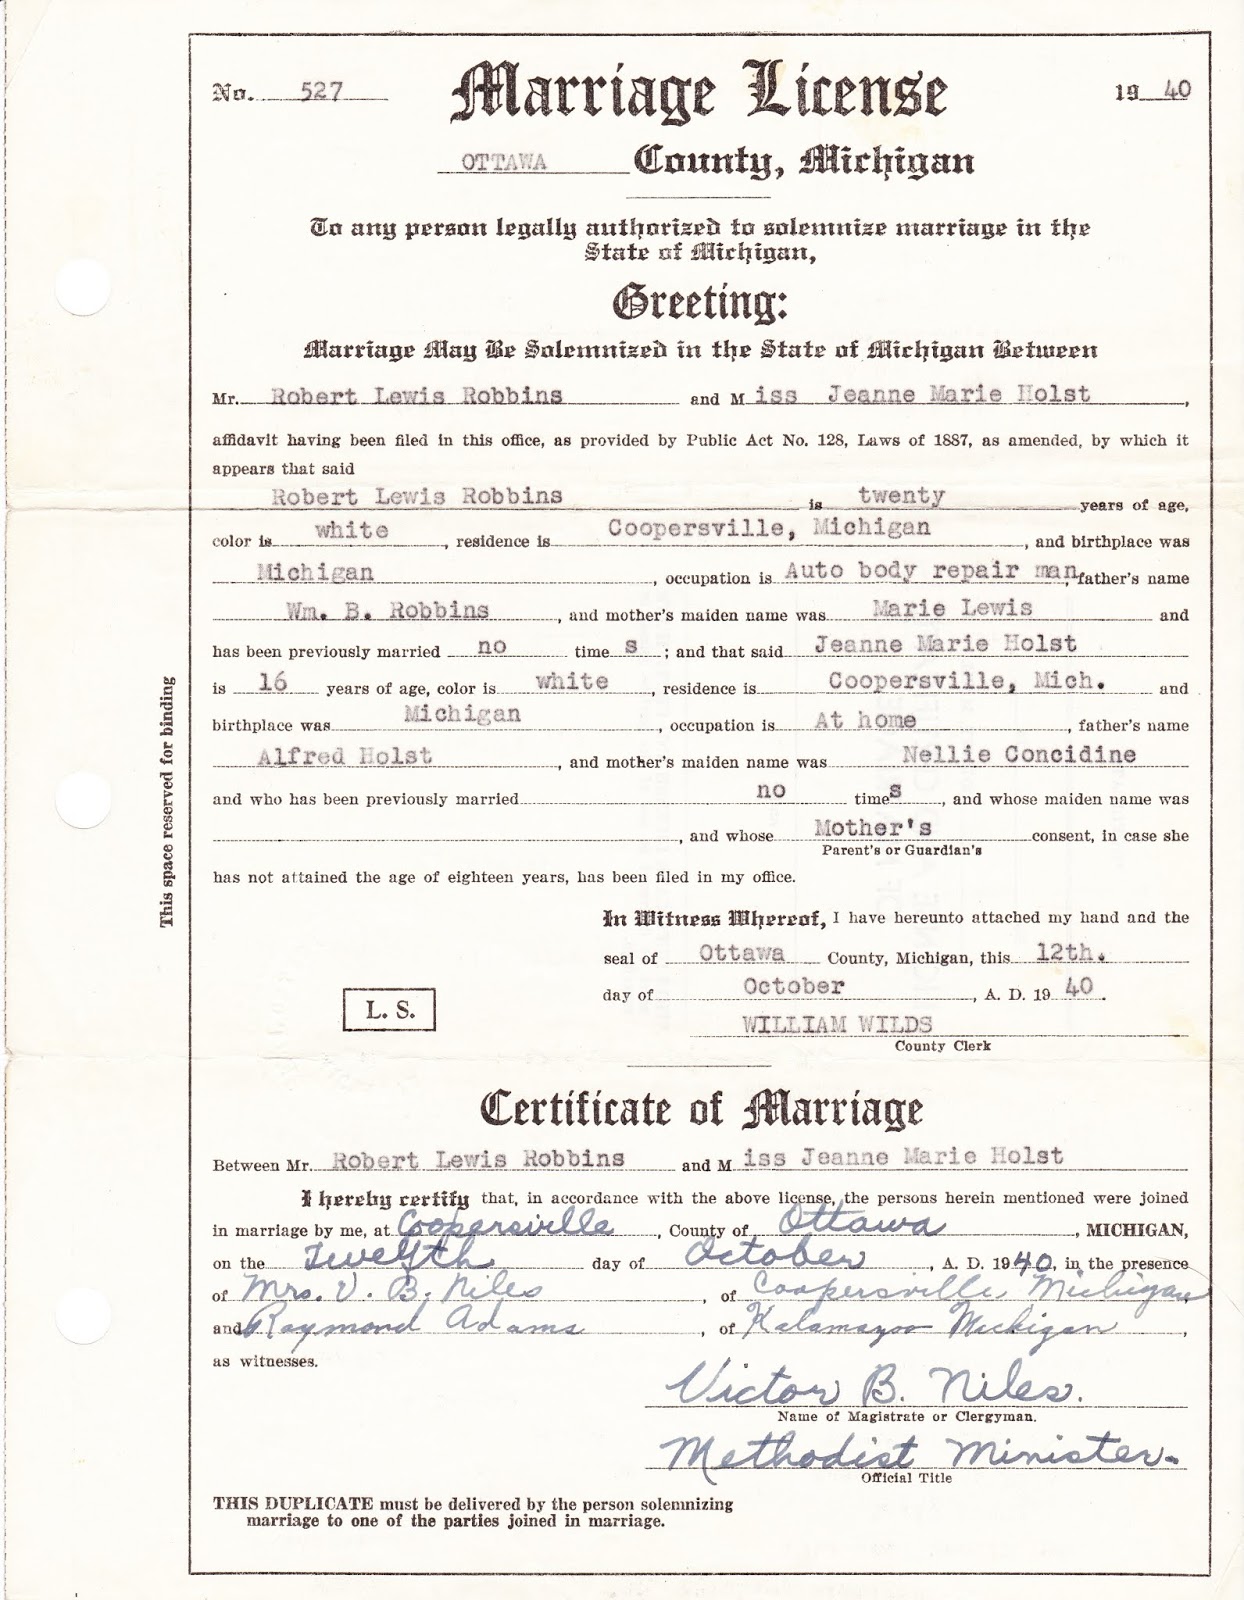 No. 527 Marriage License 19 40
OTTAWA County, Michigan
To any person legally authorized to solemnize marriage in the
State of Michigan,
Greeting:
Marriage May Be Solemnized in the State of Michigan Between
Mr. Robert Lewis Robbins and M iss Jeanne Marie Holst,
affidavit having been filed in this office, as provided by Public Act No. 128, Laws of 1887, as amended, by which it
appears that said
Robert Lewis Robbins is twenty years of age,
color is white, residence is Coopersville, Michigan, and birthplace was
Michigan, occupation is Auto body repair man, father's name
Wm. B. Robbins, and mother's maiden name was Marie Lewis and
has been previously married no time s; and that said Jeanne Marie Holst
is 16 years of age, color is white, residence is Coopersville, Mich. and
birthplace was Michigan, occupation is At home, father's name
Alfred Holst, and mother's maiden name was Nellie Concidine
and who has been previously married no time s, and whose maiden name was
, and whose Mother's consent, in case she
Parent's or Guardian's
has not attained the age of eighteen years, has been filed in my office.
In Witness Whereof, I have hereunto attached my hand and the
seal of Ottawa County, Michigan, this 12th.
day of October, A. D. 19 40.
L. S.
WILLIAM WILDS
County Clerk
Certificate of Marriage
Between Mr. Robert Lewis Robbins and M iss Jeanne Marie Holst
I hereby certify that, in accordance with the above license, the persons herein mentioned were joined
in marriage by me, at Coopersville, County of Ottawa, MICHIGAN,
on the Twelfth day of October, A. D. 1940, in the presence
of Mrs. V. B. Niles, of Coopersville, Michigan
and Raymond Adams, of Kalamazoo Michigan,
as witnesses.
Victor B. Niles.
Name of Magistrate or Clergyman.
Methodist Minister.
Official Title
THIS DUPLICATE must be delivered by the person solemnizing
marriage to one of the parties joined in marriage.
This space reserved for binding